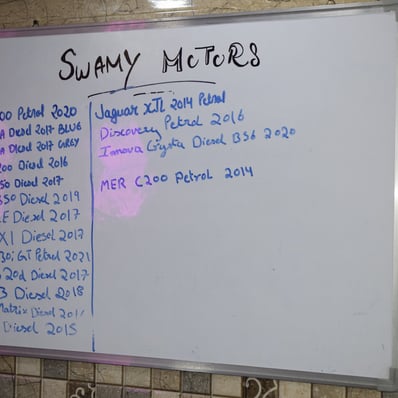 SWAMY MOTORS
00 Petrol 2020
A Diesel 2017 BLUE
A Diesel 2017 GREY
200 Diesel 2016
50 Diesel 2017
350 Diesel 2019
E Diesel 2017
X1 Diesel 2017
30i GT Petrol 2021
20d Diesel 2017
3 Diesel 2018
Matrix Diesel 201
Diesel 2015
Jaguar XJL 2014 Petrol
Discovery Petrol 2016
Innova Crysta Diesel BS6 2020
MER C200 Petrol 2014